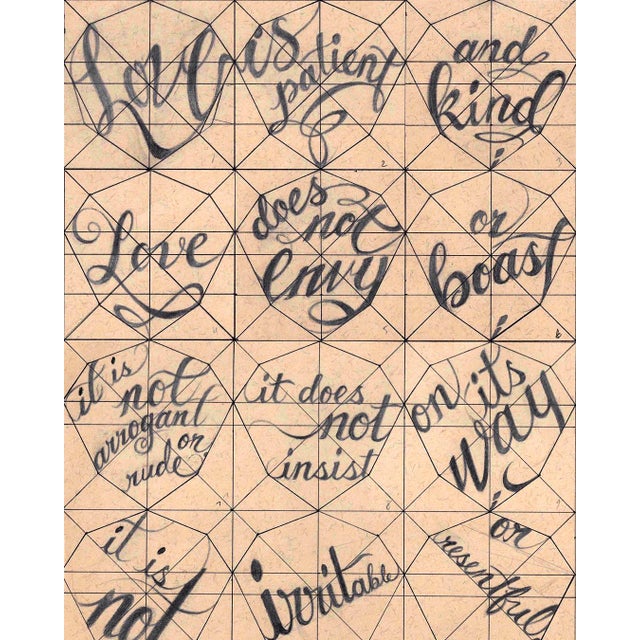 Love
is
patient
and
kind
2
3
Love
does
not
envy
or
boast
4
5
6
it is
not
arrogant
or
rude
it does
not
insist
on its
way
7
8
9
it is
not
irritable
or
resentful